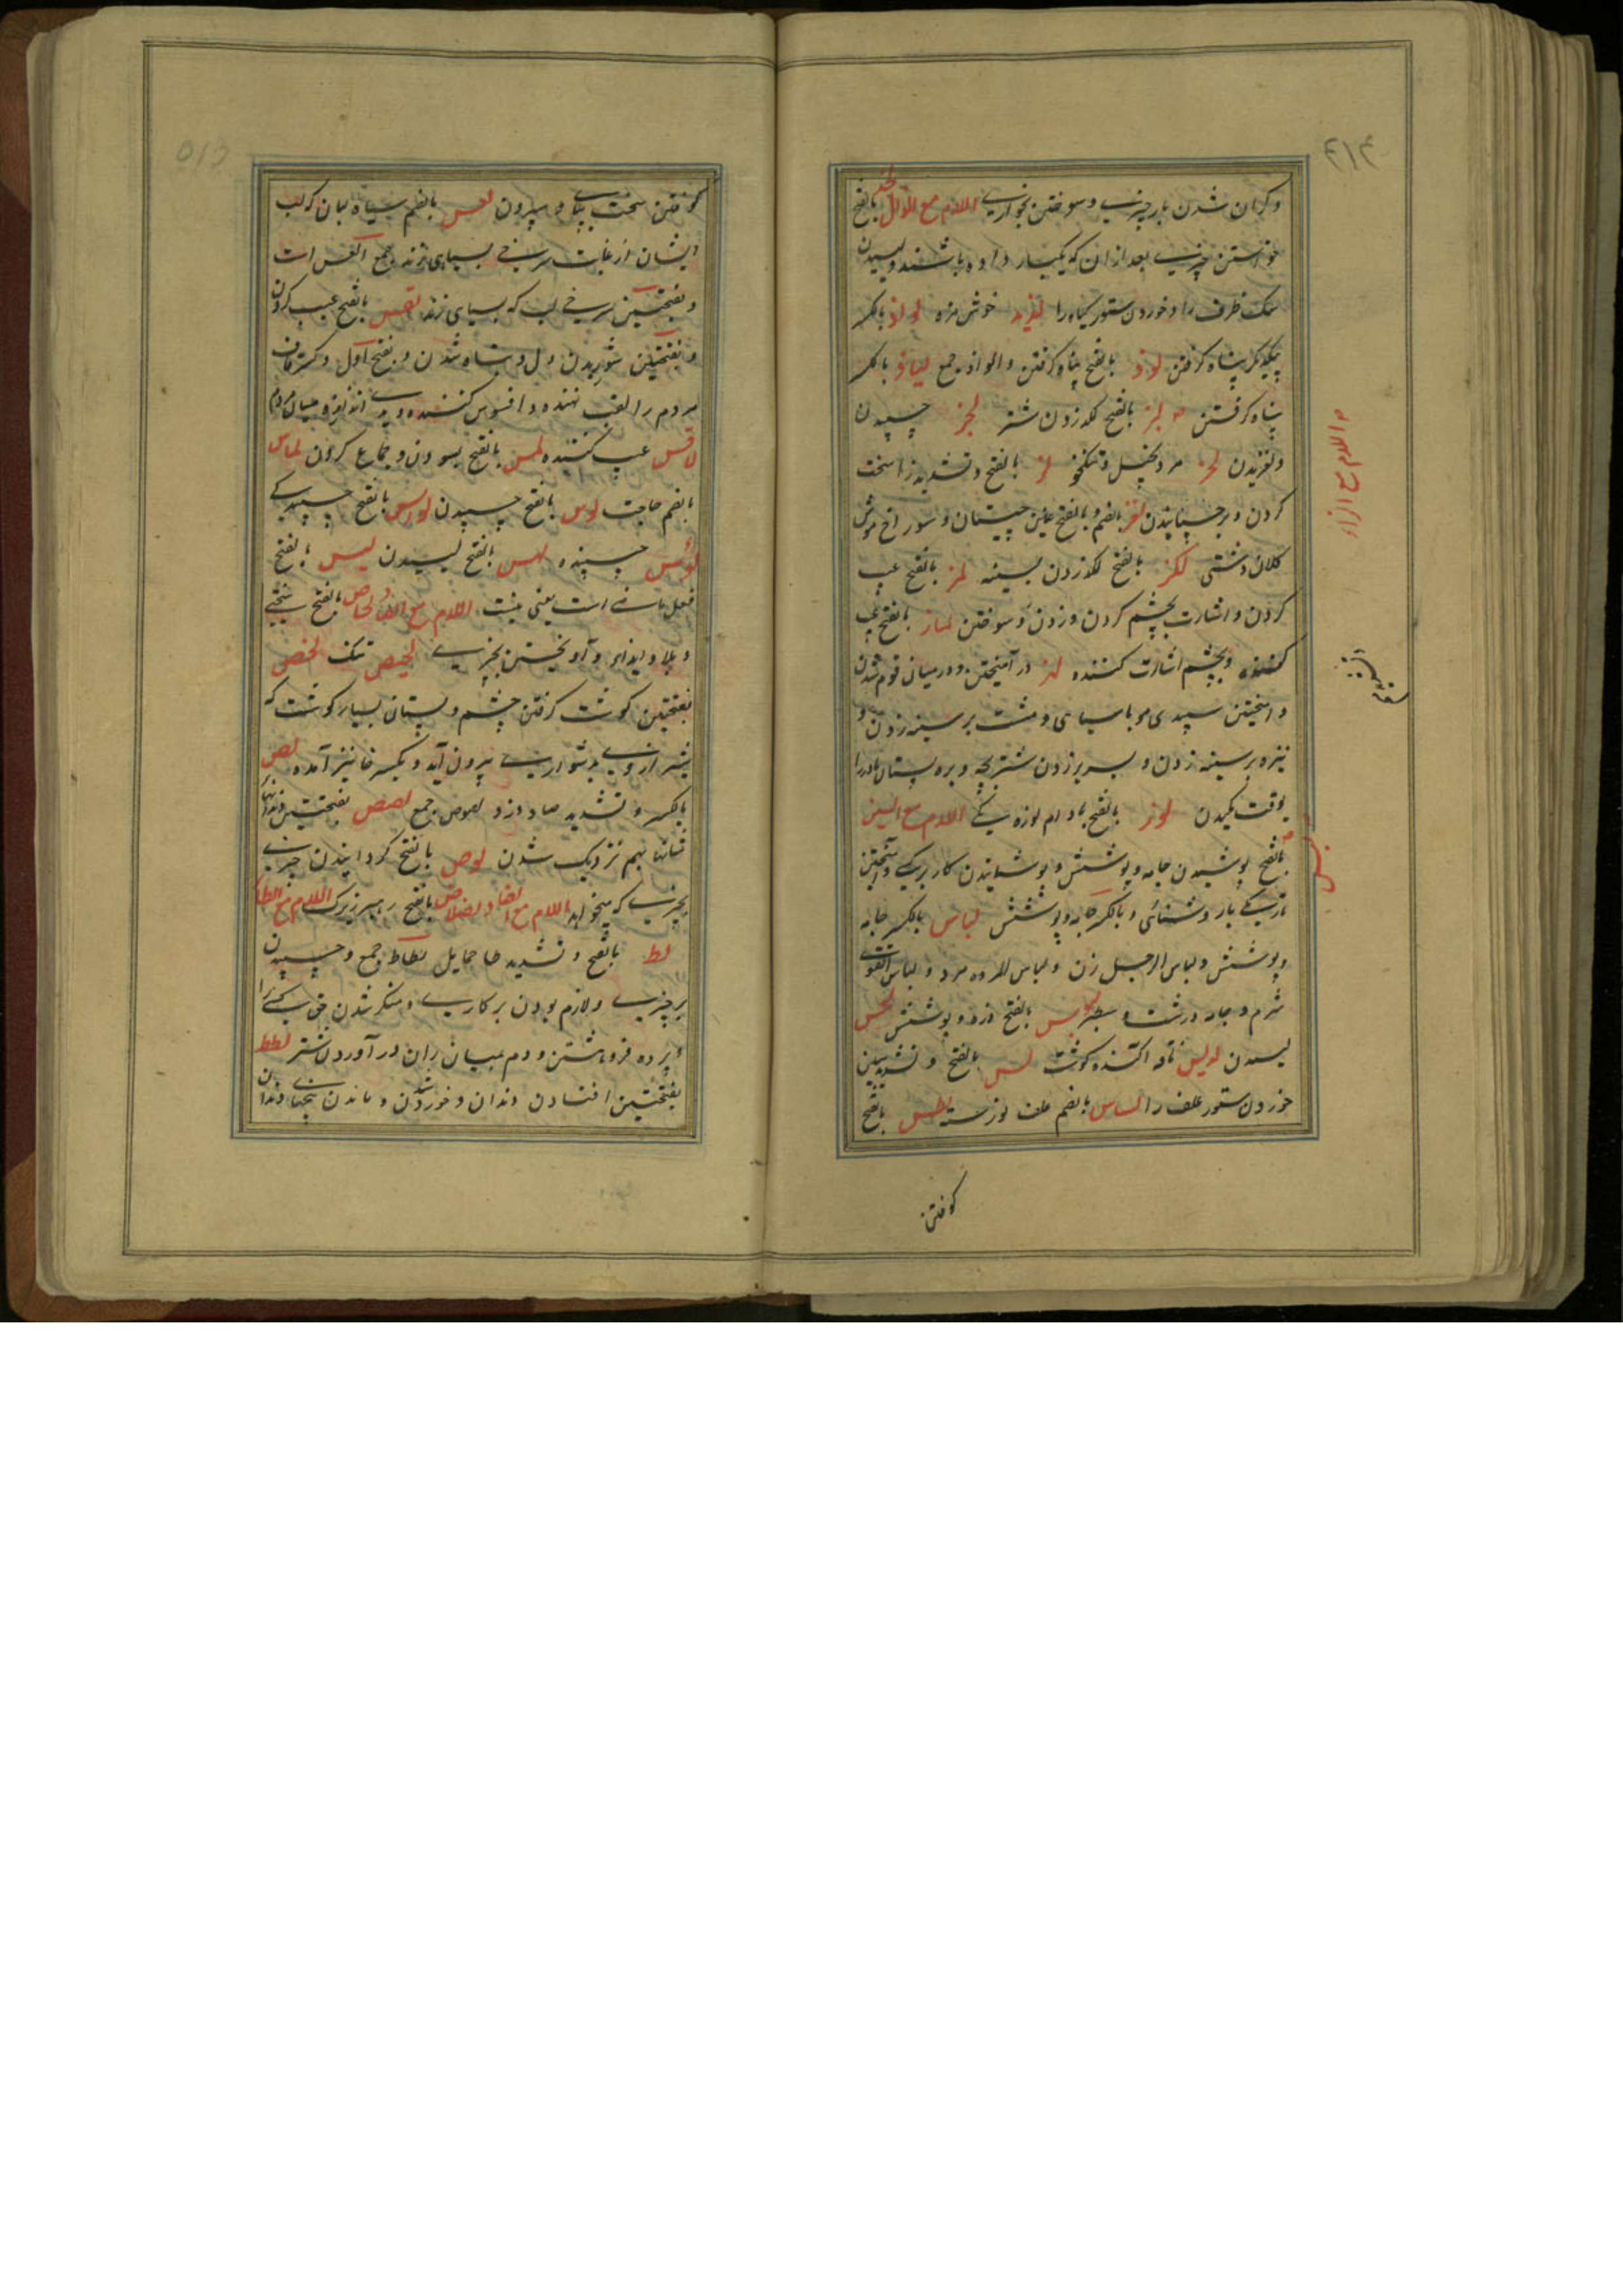 ۴۱۴
وکران شدن بار چیزی و سوختن بخواری اللام مع الذال لخذ بالفتح
خواستن چیزی بعد از ان که یکبار داده باشند و لیسیدن
سک ظرف را و خوردن ستور کیاه را لذیذ خوش مزه لواذ بالکسر
بیکدیکر پناه کرفتن لوذ بالفتح پناه کرفتن و الواذ جمع لیاذ بالکسر
پناه کرفتن لبز بالفتح لکد زدن شتر لجز چسپیدن
و لغزیدن لحز مرد بخیل و تنکخو لز بالفتح و تشدید زا سخت
کردن و بر چسپانیدن لغز بالضم و بالفتح غین چیستان و سوراخ موش
کلان دشتی لکز بالفتح لکد زدن بسینه لمز بالفتح عیب
کردن و اشارت بچشم کردن و زدن و سوختن لماز بالفتح عیب
کننده و بچشم اشارت کننده لهز در آمیختن و درمیان قوم شدن
و آمیختن سپیدی مو با سیاهی و مشت بر سینه زدن و
نیزه بر سینه زدن و سر بر زدن شتر بچه و بره پستان مادر را
بوقت مکیدن لوز بالفتح بادام لوزه یکی اللام مع السین
بالفتح پوشیدن جامه و پوشش و پوشانیدن کار بر یکی و آمیختن
تاریکی با روشنائی و بالکسر جامه و پوشش لباس بالکسر جامه
و پوشش و لباس الرجل زن و لباس المرءه مرد و لباس التقوی
شرم و جامه درشت و سطبر لبوس بالفتح زره و پوشش لحس
لیسیدن لدیس ناقه اکنده کوشت لس بالفتح و تشدید سین
خوردن ستور علف را لساس بالضم علف نورسته لطس بالفتح
کوفتن
و اللام مع الزاء
لبس
۵۱۵
کوفتن سخت بپای و بیرون لعس بالضم سیاه لبان که لب
ایشان از غایت سرخی بسیاهی زند جمع العس است
و بفتحتین سرخی لب که بسیاهی زند لقس بالفتح عیب کردن
و بفتحتین شوریدن دل و تباه شدن و بفتح اول و کسر قاف
مردم را لقب نهنده و افسوس کننده و بدی اندازنده میان مردم
لاقس عیب کننده لمس بالفتح بسودن و جماع کردن لماس
بالضم حاجت لوس بالفتح چسپیدن لواس بالفتح چسپیدکی
لوس چسپنده لهس بالفتح لیسیدن لیس بالفتح
فعل ماضی است یعنی نیست اللام مع الصاد لحاص بالفتح سختی
و بلا و ایذا و آویختن بچیزی لحیص تنک لخص
بفتحتین کوشت کرفتن چشم و پستان بسیار کوشت که
شیر ازوی بدشواری بیرون آید و بکسر خا نیز آمده لص
بالکسر و تشدید صاد دزد لصوص جمع لصص بفتحتین دندانها و
شانها بهم نزدیک شدن لوص بالفتح کردانیدن چیزی
بچیزی که میخواهد اللام مع الضاد لضلاض بالفتح رهبر زیرک اللام مع الطا
لط بالفتح و تشدید طا حمایل لطاط جمع و چسپیدن
بر چیزی و لازم بودن بر کاری و منکر شدن حق کسی را
و پرده فرو هشتن و دم بمیان ران در آوردن شتر لطط
بفتحتین افتادن دندان و خورده شدن و ماندن بیخهای دندان